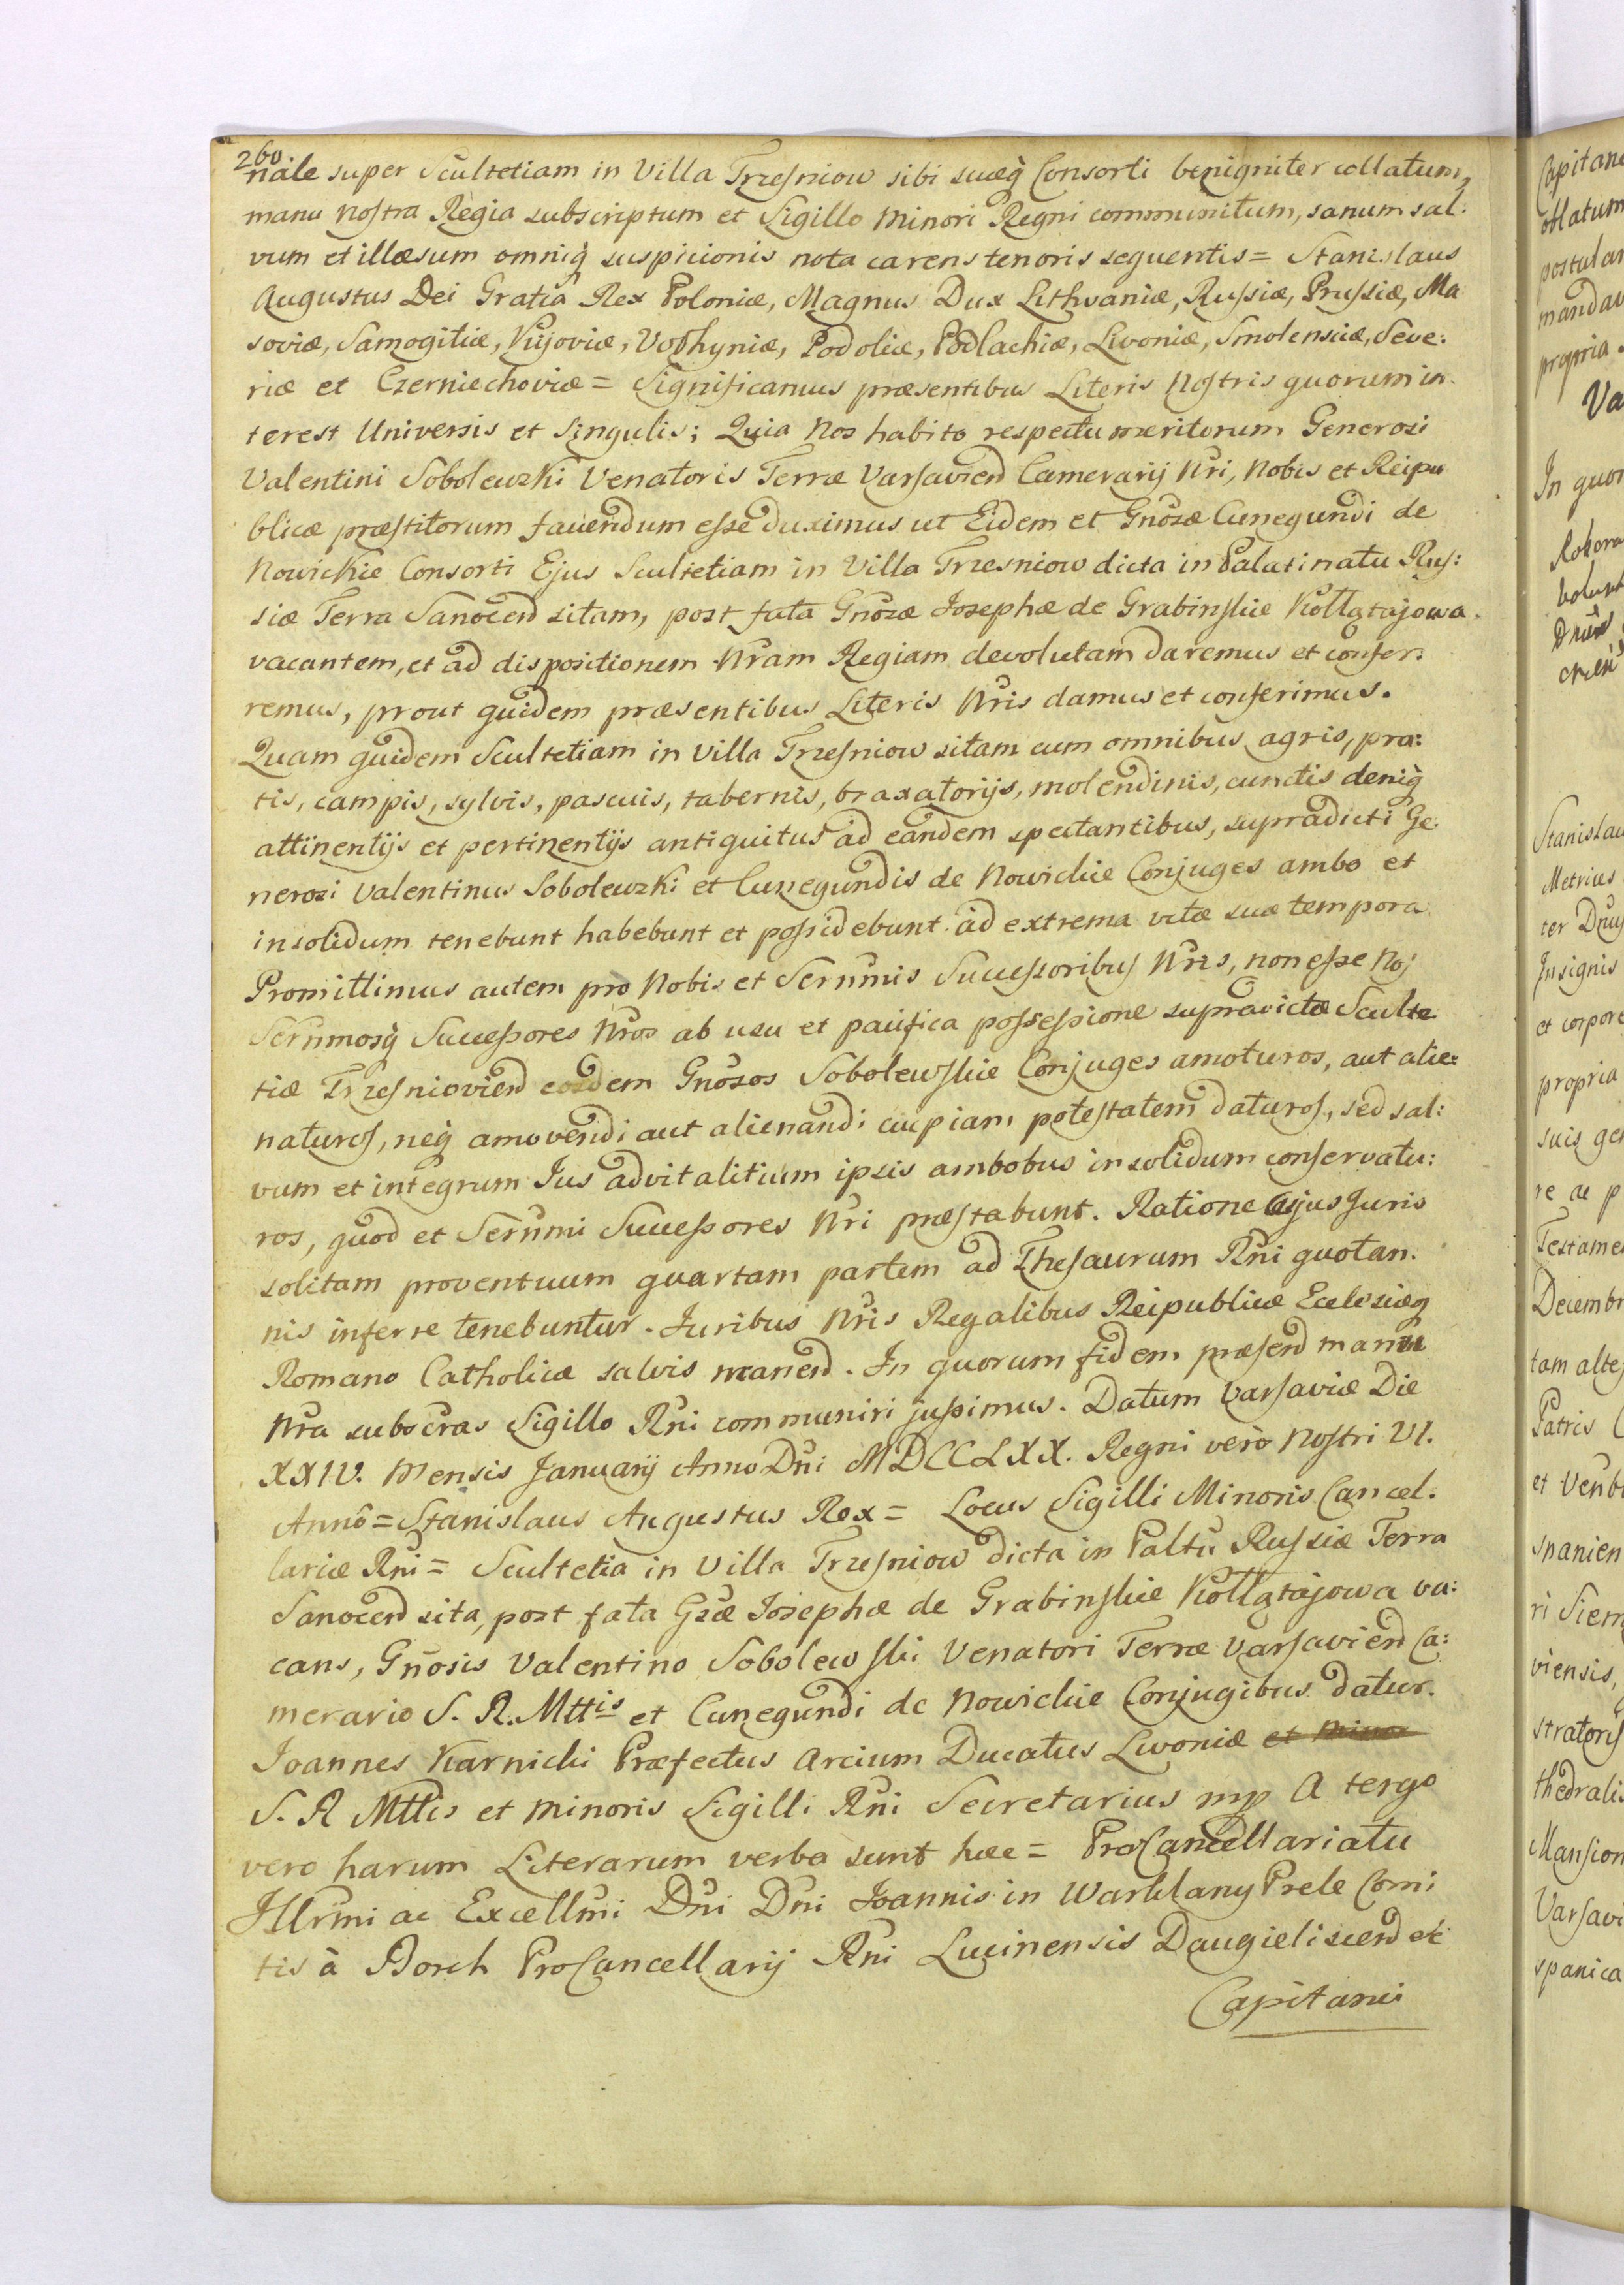 260
nale super Scultetiam in Villa Trzesniow sibi suæq̀ Consorti benigniter collatum,
manu nostra Regia subscriptum et Sigillo minori Regni communitum, sanum sal:
vum et illæsum omniq̀ suspicionis nota carens tenoris sequentis = Stanislaus
Augustus Dei Gratia Rex Poloniæ, Magnus Dux Lithvaniæ, Russiæ, Prussiæ, Ma
soviæ, Samogitiæ, Kijoviæ, Volhyniæ, Podoliæ, Podlachiæ, Livoniæ, Smolensciæ, Seve:
riæ et Czerniechoviæ = Significamus præsentibus Literis Nostris quorum in-
terest Universis et Singulis; Quia Nos habito respectu meritorum Generosi
Valentini Sobolewzki Venatoris Terræ Varsaviend Camerarij Nri, Nobis et Reipu
blicæ præstitorum favendum esse duximus ut Eidem et Gnosæ Cunegundi de
Nowickie Consorti Ejus Scultetiam in Villa Trzesniow dicta in Palatinatu Rus:
siæ Terra Sanocend sitam, post fata Gnosæ Josephæ de Grabinskie Kołłątajowa
vacantem, et ad dispositionem Nram Regiam devolutam daremus et confer:
remus, prout quidem præsentibus Literis Nris damus et conferimus.
Quam quidem Scultetiam in Villa Trzesniow sitam cum omnibus agris, pra:
tis, campis, sylvis, pascuis, tabernis, braxatorijs, molendinis, cunctis deniq̀
attinentijs et pertinentijs antiquitus ad eandem spectantibus, supradicti Ge:
nerosi Valentinus Sobolewzki et Cunegundis de Nowickie Conjuges ambo et
insolidum tenebunt habebunt et possidebunt ad extrema vitæ suæ tempora
Promittimus autem pro Nobis et Sernmis Successoribus Nris, non esse Nos
Sernmosq̀ Successores Nros ab usu et pacifica possessione supradictæ Sculte
tiæ Trzesnioviend eosdem Gnosos Sobolewskie Conjuges amoturos, aut alie:
naturos, neq̀ amovendi aut alienandi cuipiam potestatem daturos, sed sal:
vum et integrum Jus advitalitium ipsis ambobus insolidum conservatu:
ros, quod et Sernmi Successores Nri præstabunt. Ratione cujus Juris
solitam proventuum quartam partem ad Thesaurum Rni quotan:
nis inferre tenebuntur. Juribus Nris Regalibus Reipublicæ Ecclesiæq̀
Romano Catholicæ salvis manend. In quorum fidem præsend manu
Nra subscras Sigillo Rni communiri jussimus. Datum Varsaviæ Die
XXIV. Mensis Januarij Anno Dni MDCCLXX. Regni verò Nostri VI.
Annô = Stanislaus Augustus Rex = Locus Sigilli Minoris Cancel:
lariæ Rni = Scultetia in Villa Trzesniow dicta in Paltu Russiæ Terra
Sanocend sita, post fata Gsæ Josephæ de Grabinskie Kołłątajowa va:
cans, Gnosis Valentino Sobolewski Venatori Terræ Varsaviend Ca:
merario S. R. Mttis et Cunegundi de Nowickie Conjugibus datur.
Joannes Karnicki Præfectus Arcium Ducatus Livoniæ et Mino
S. R Mttis et Minoris Sigilli Rni Secretarius mp A tergo
vero harum Literarum verba sunt hæc = ProCancellariatu
Illrmi ac Excellmi Dni Dni Joannis in Warklany Prele Comi
tis à Borch ProCancellarij Rni Lucinensis Daugieliscend et
Capitanei
Capitane
oblatum
postular
mandav
propria.
Va
In quor
Stanislau
Metrices
ter Druy
Insignis
et corpore
propria
suis ge
re ac p
Testame
Decembr
tam alte
Patris
et Venb
spanien
ri Siem
viensis,
stratoris
thedralis
Mansion
Varsavi
spanica